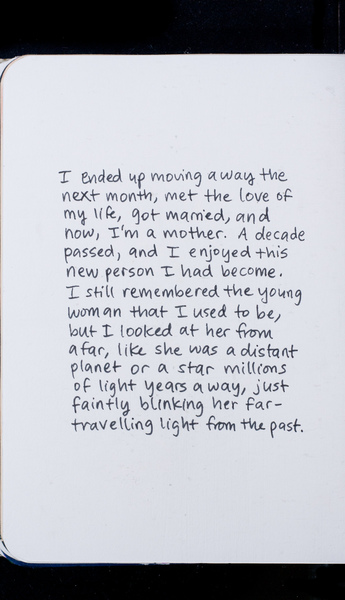 I ended up moving away the
next month, met the love of
my life, got married, and
now, I'm a mother. A decade
passed, and I enjoyed this
new person I had become.
I still remembered the young
woman that I used to be,
but I looked at her from
afar, like she was a distant
planet or a star millions
of light years away, just
faintly blinking her far-
travelling light from the past.